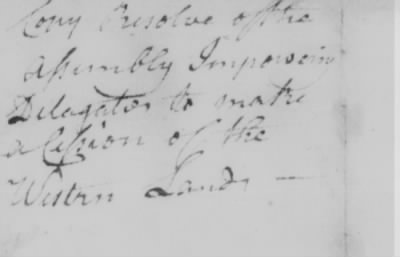 Copy Resolve of the
Assembly Impowering
Delagates to make
a Cession of the
Western Lands —